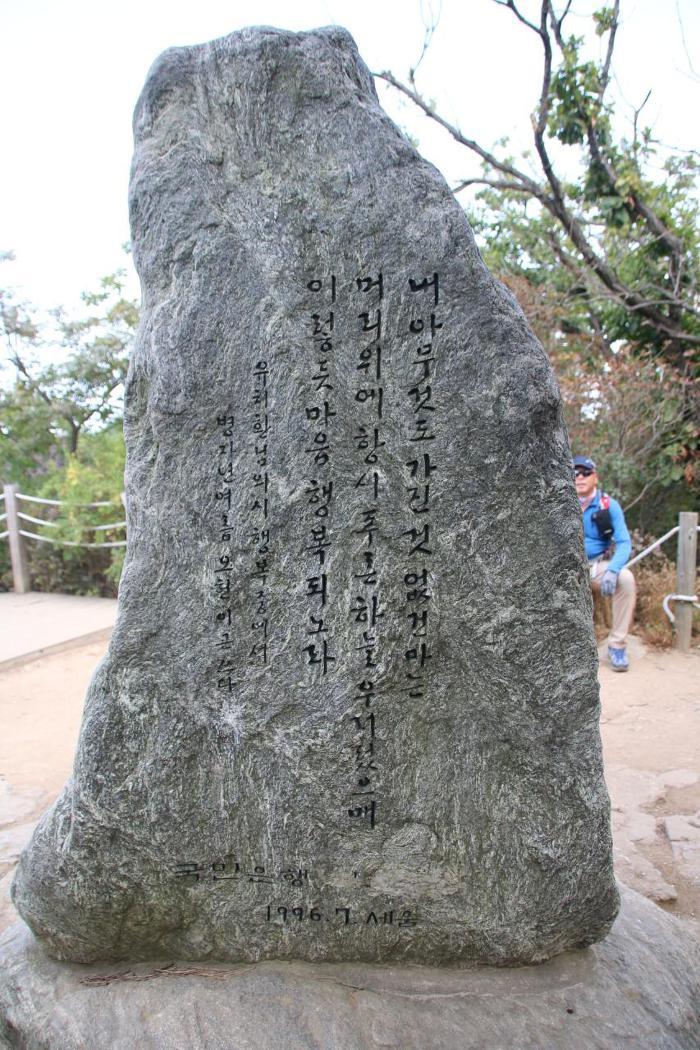 내아무것도가진것없건마는
머리위에항시푸른하늘우러렀으매
이렇듯마음행복되노라
유치환님의시행복중에서
병자년여름
국민은행
1996.7. 세움